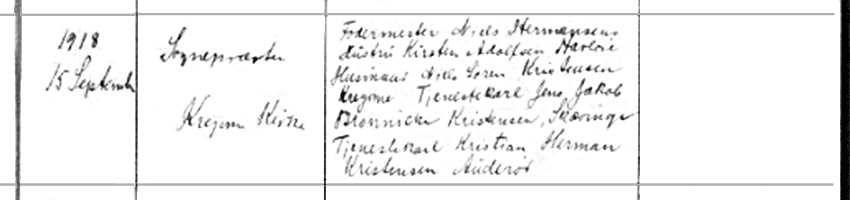 1918
15 Septemb
Sognepræsten
Kregme Kirke
Fodermester Niels Hermansens
Hustru Kirsten Adolfsen Havlose
Husmand Niels Søren Kristensen
Kregme Tjenestekarl Jens Jakob
Kristensen, Skævinge
Tjenestekarl Kristian Herman
Kristensen Auderød